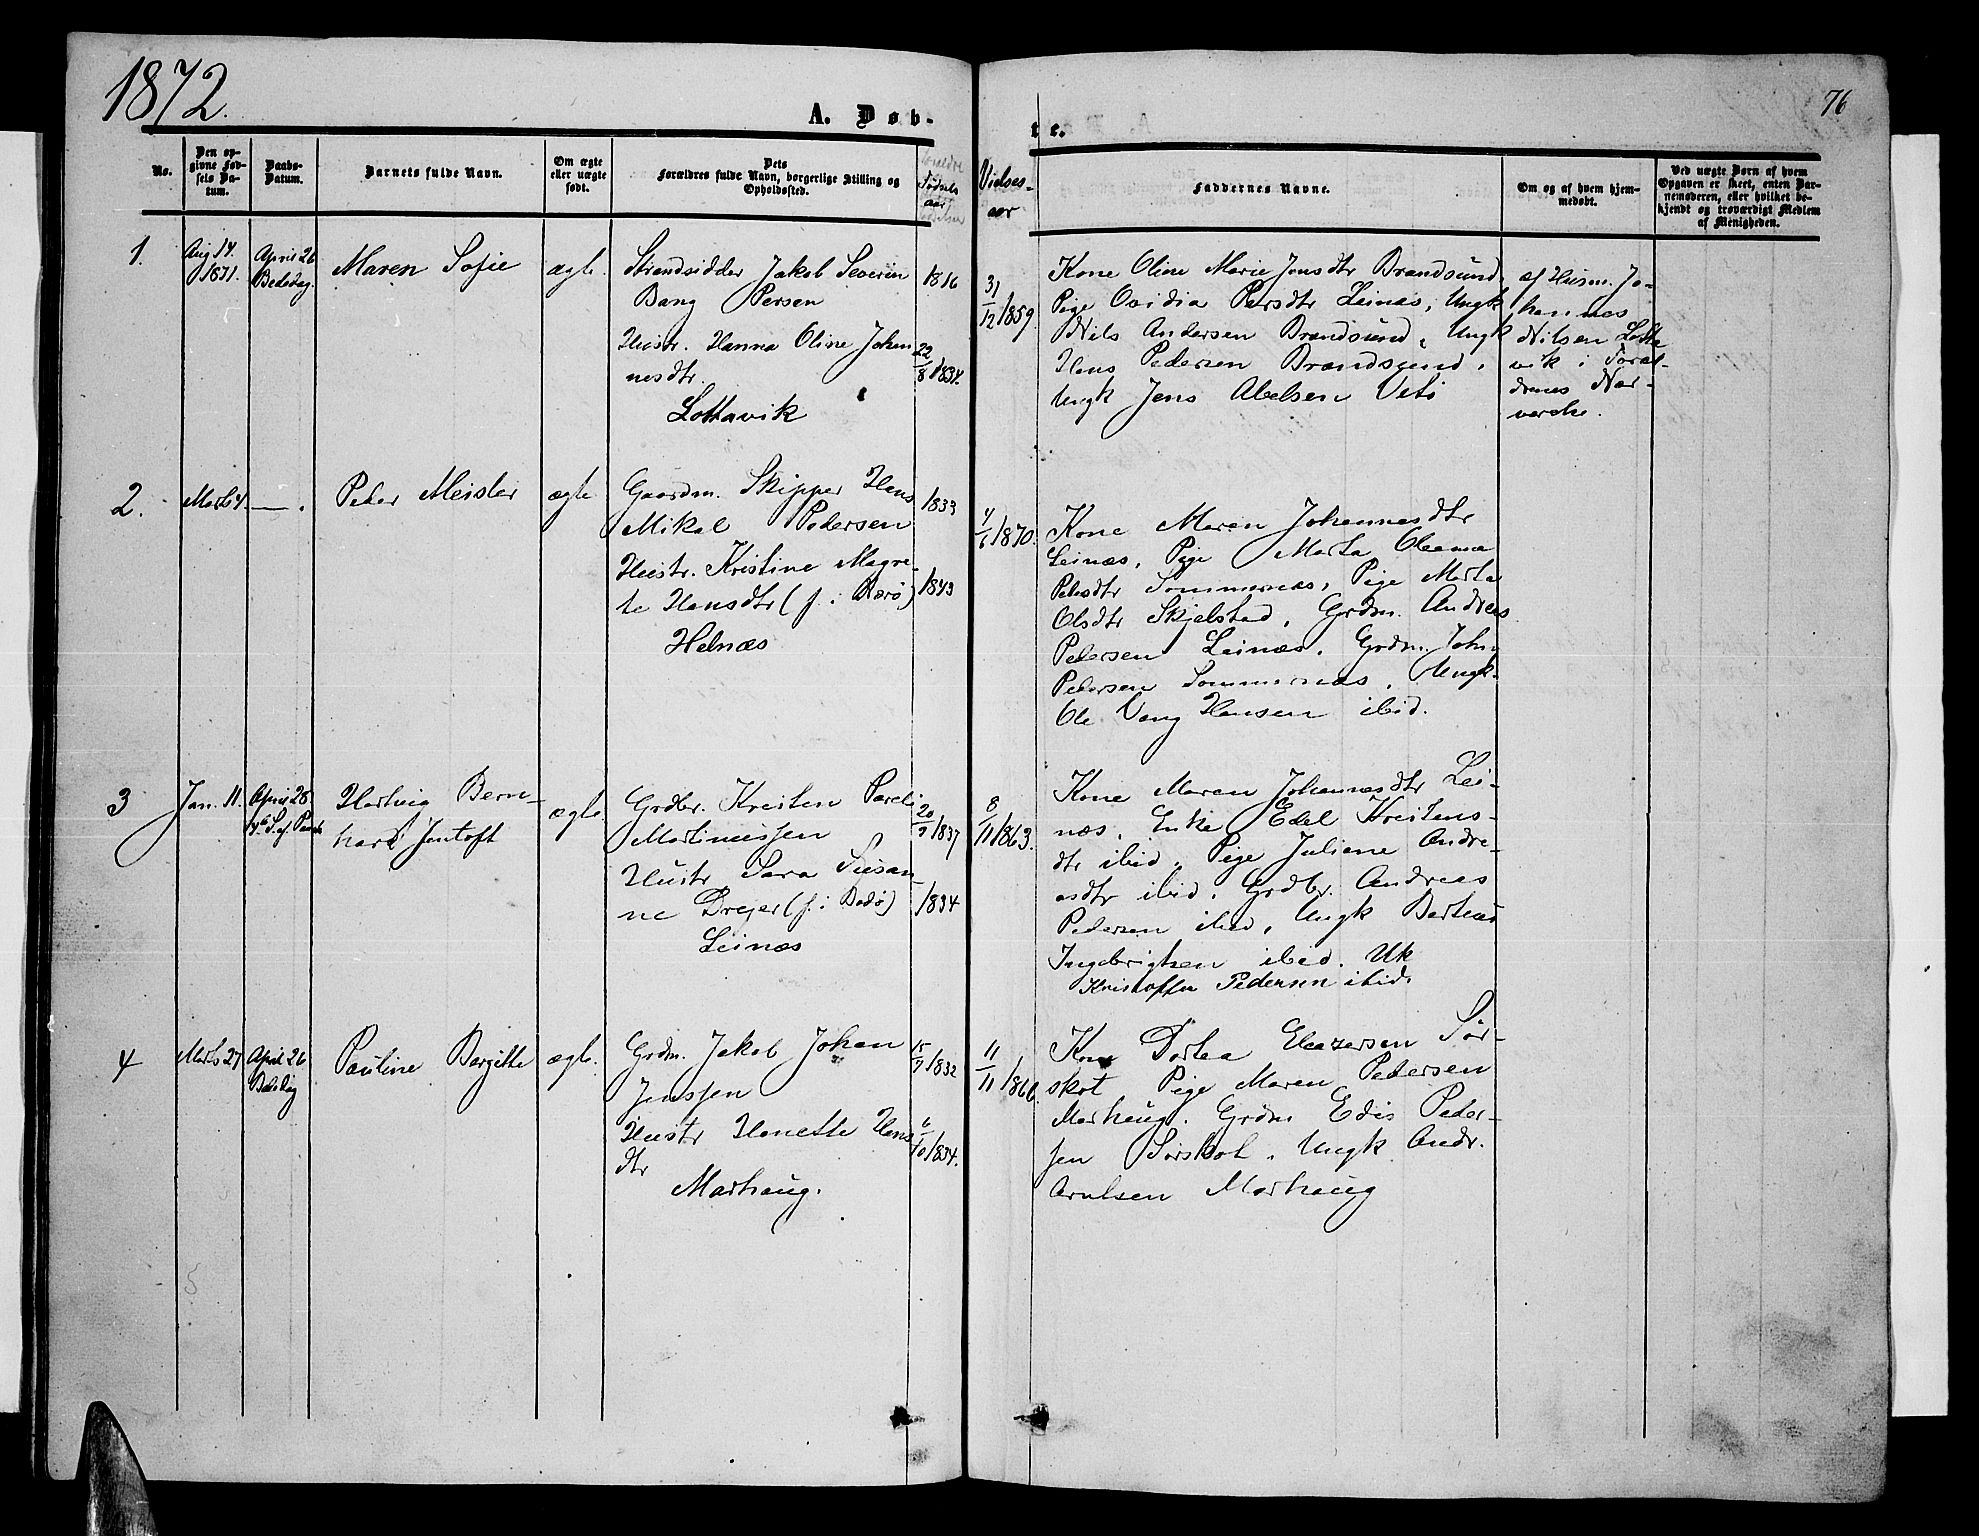 1872.
76
A. Døb-
te.
No.
Den op-
givne Fød-
sels Da-
tum.
Daabs-
Datum.
Barnets fulde Navn.
Om ægte
eller uægte
født.
Dets
Forældres fulde Navn, borgerlige Stilling og
Opholdssted.
Fødsels
aar
Vielses-
aar
Faddernes Navne.
Om og af hvem hjem-
medøbt.
Ved uægte Børn af hvem
Opgaven er skeet, enten Bar-
nemoderen, eller hvilket be-
kjendt og troværdigt Medlem
af Menigheden.
1.
Aug 14.
1871.
April 26
Bededag.
Maren Sofie
ægte.
Strandsidder Jakob Severin
Bang Persen
Hustr. Hanna Oline Johan
nesdtr.
Lottavik
1816
22/8 1834.
31/12 1859.
Kone Oline Marie Jensdtr Brandsund.
Pige Ovidia Persdtr Leinæs, Ungk
Nils Andersen Brandsund, Ungk
Hans Pedersen Brandsund.
Ungk Jens Abelsen Vetø
af Husm. Jo-
hannes
Nilsen Lotta
vik i Foræl-
drenes Nær-
værelse.
2.
Marts 4.
—.
Peder Meisler
ægte
Gaardm. Skipper Hans
Mikal Pedersen
Hustr. Kristine Magre-
te Hansdtr (f. i Bærø)
Helnæs
1833
1843
4/6 1870.
Kone Maren Johannesdtr
Leinæs, Pige Marta Oleana
Pedsdtr Sommernæs, Pige Marta
Olsdtr Skjelstad, Grdm. Andreas
Pedersen Leinæs, Grdm. John
Pedersen Sommernæs, Ungk.
Ole Vang Hansen ibid.
3
Jan. 11.
April 28.
4de S. ef. Paaske
Hartvig Bern-
hard Jentoft
ægte.
Grdbr. Kresten Pareli
Martinussen
Hustr Sara Susan-
ne Drejer (f. i Bodø)
Leinæs
20/9 1837
1834
8/11 1863.
Kone Maren Johannesdtr Lei-
næs, Enke Edel Kristens-
dtr ibid, Pige Juliane Andre-
asdtr ibid, Grdbr. Andreas
Pedersen ibid, Ungk Berteus
Ingebrigtsen ibid. Uk
Kristoffer Pedersen ibid.
4
Marts 27
April 26
Bededag
Pauline Bergitte
ægte.
Grdm. Jakob Johan
Jenssen
Hustr Hanette Hans
dtr
Marhaug.
15/9 1832
6/10 1834.
11/11 1866.
Kone Dortea Eleazersen Sør-
skot Pige Maren Pedersen
Marhaug. Grdm Edis Peder-
sen Sørskot. Ungk Andr.
Arntsen Marhaug
5